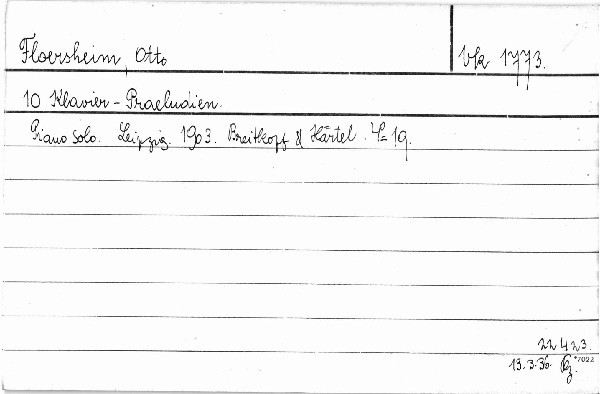 Floersheim, Otto
Vfk 1773.
10 Klavier-Praeludien.
Piano solo. Leipzig. 1903. Breitkopf & Härtel. 4° 19.
22423.
13.3.36.
*7022